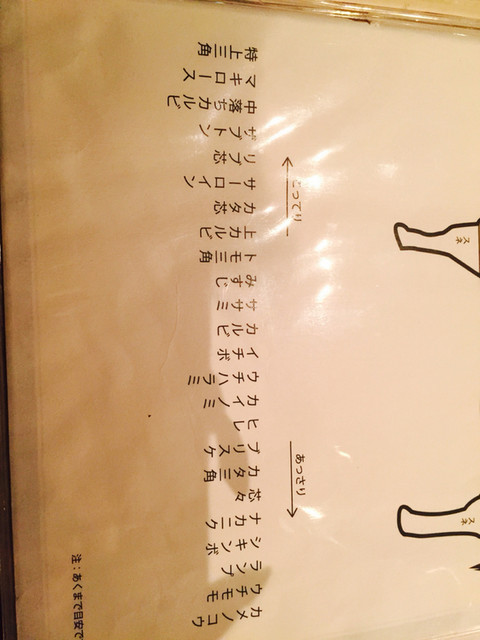 スネ
スネ
こってり
あっさり
カメノコウ
ウチモモ
ランプ
シキンボ
ナカニク
芯々
カタ三角
ブリスケ
ヒレ
カイノミ
ウチハラミ
イチボ
カルビ
ササミ
みすじ
トモ三角
上カルビ
カタ芯
サーロイン
リブ芯
ザブトン
中落ちカルビ
マキロース
特上三角
注：あくまで目安で